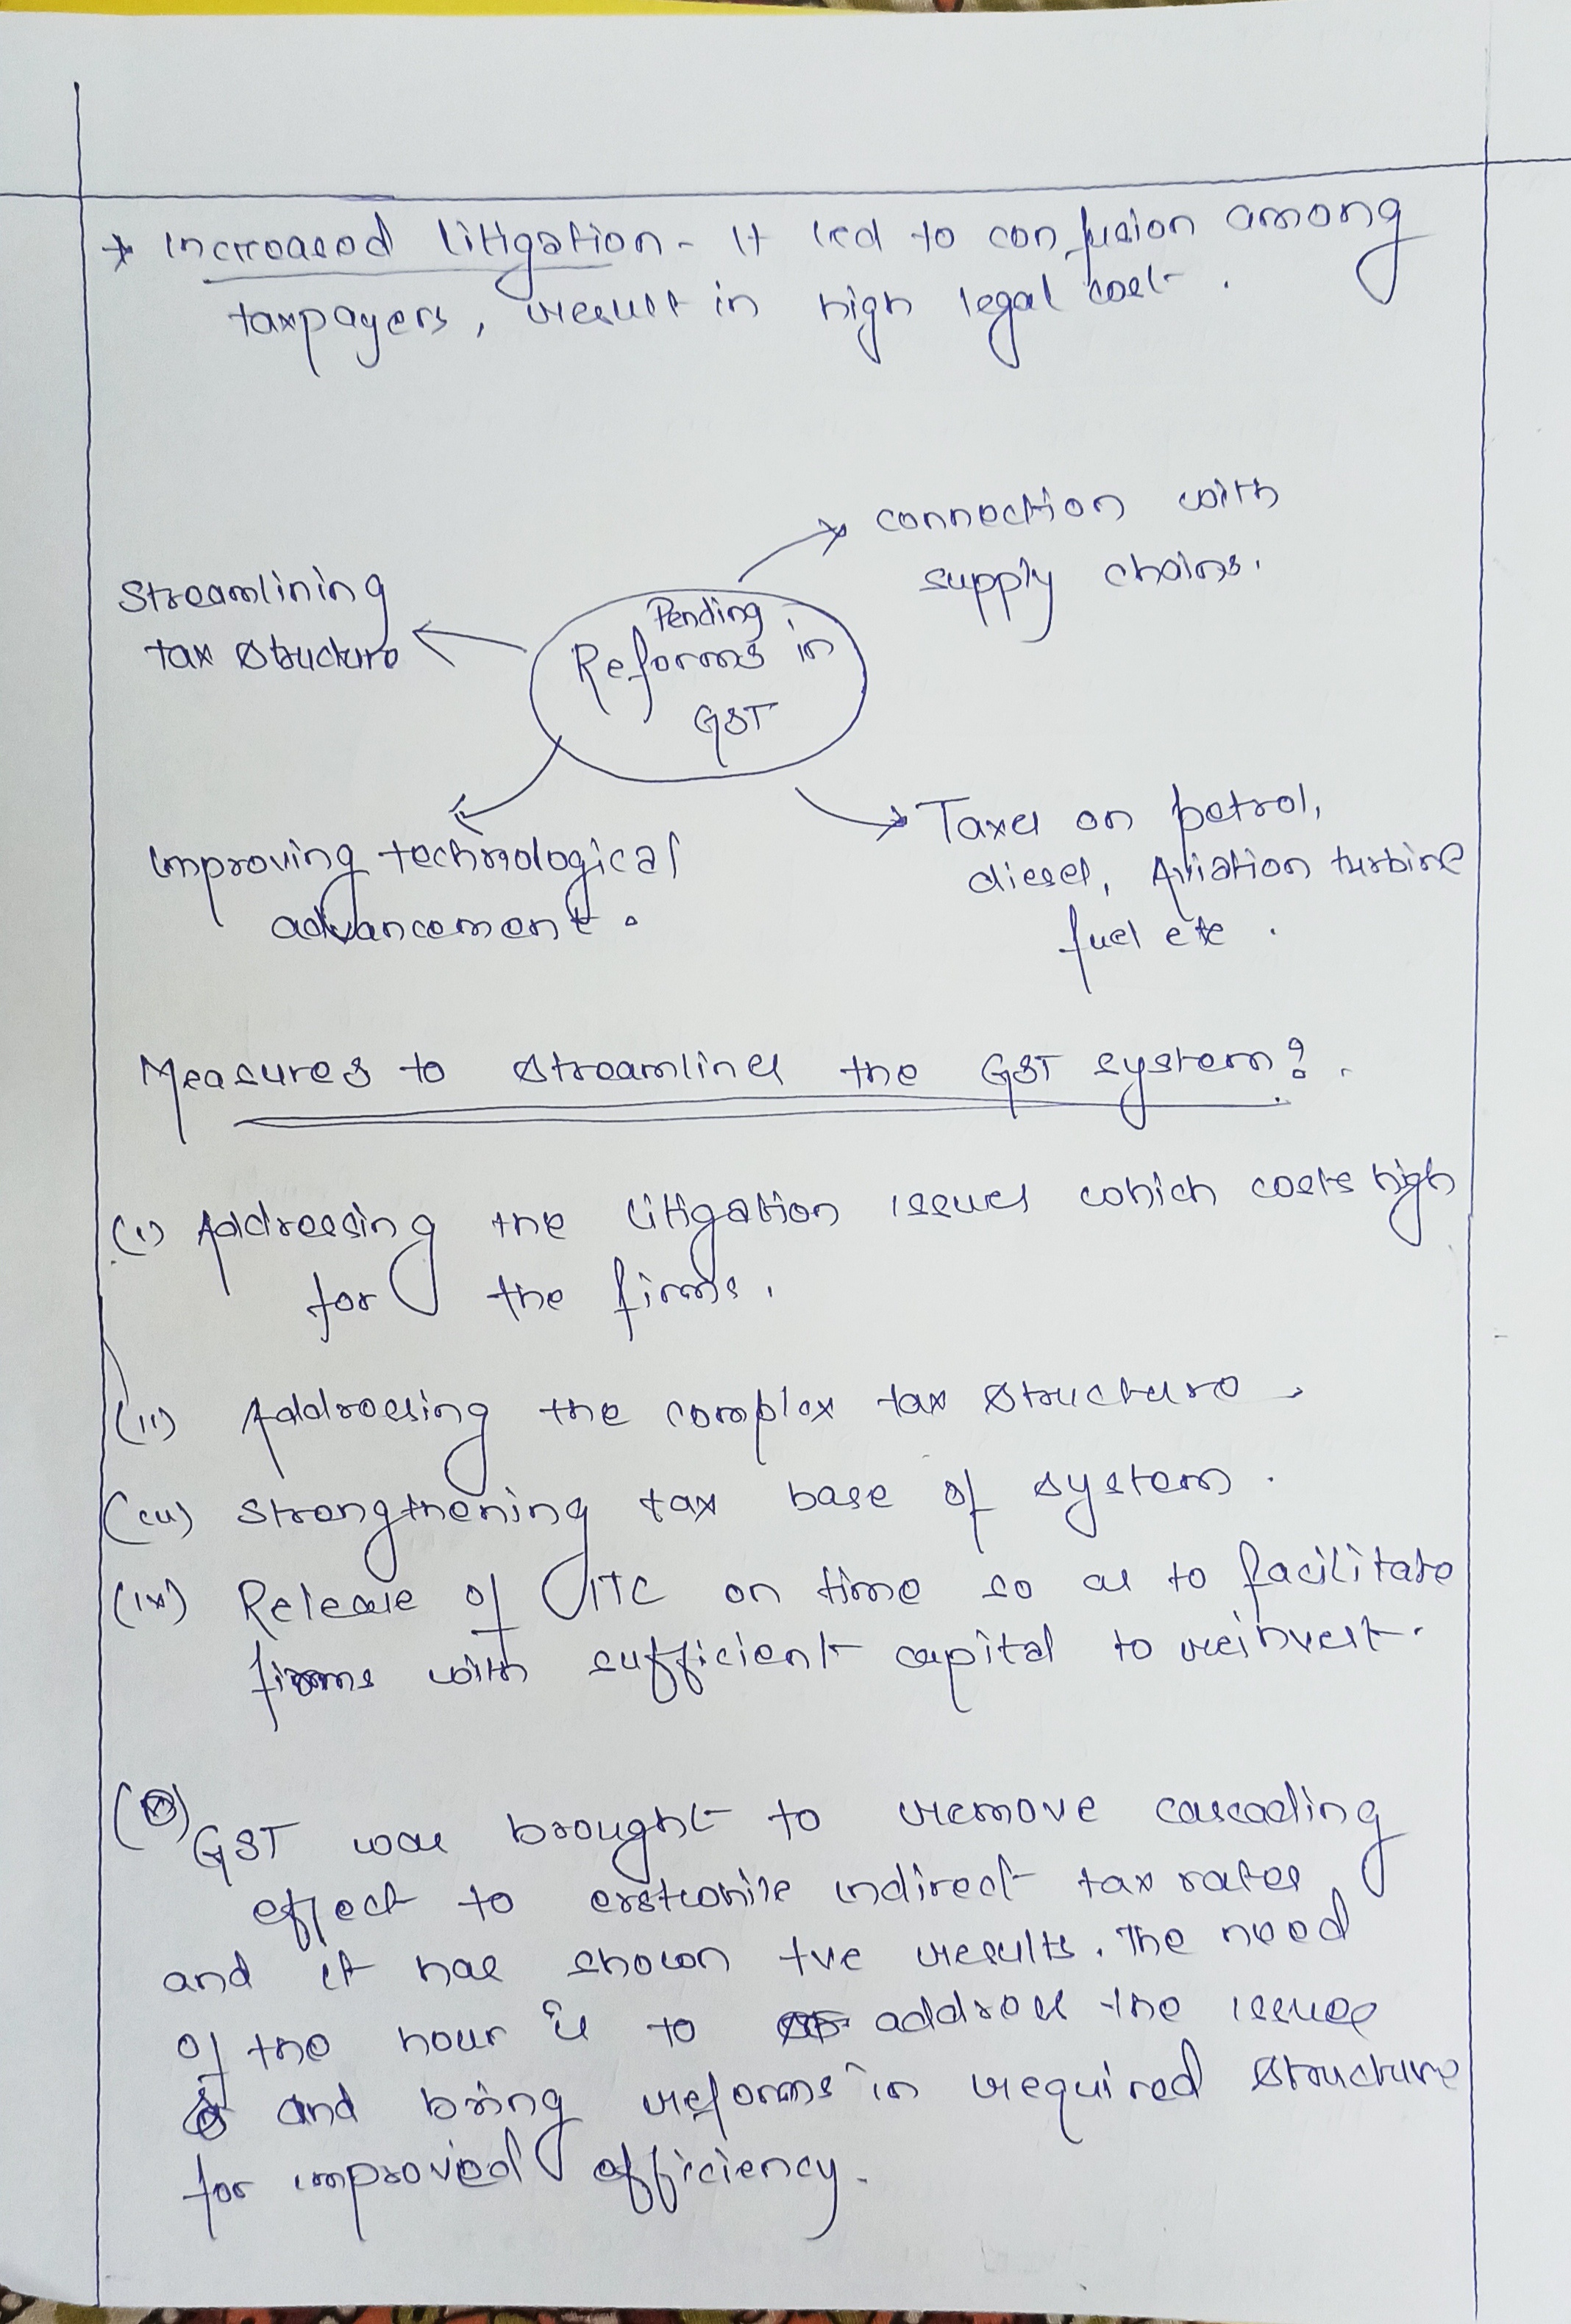 * Increased litigation - It led to confusion among
taxpayers, result in high legal cost.
connection with
supply chains.
Streamlining
tax structure
Pending
Reforms in
GST
Improving technological
advancement.
Taxes on petrol,
diesel, Aviation turbine
fuel etc.
Measures to streamlines the GST system?.
(i) Addressing the litigation issues which costs high
for the firms.
(ii) Addressing the complex tax structure.
(iii) Strengthening tax base of system.
(iv) Release of ITC on time so as to facilitate
firms with sufficient capital to reinvest.
GST was brought to remove cascading
effect to erstwhile indirect tax rates,
and it has shown +ve results. The need
of the hour is to address the issues
and bring reforms in required structure
for improved efficiency.